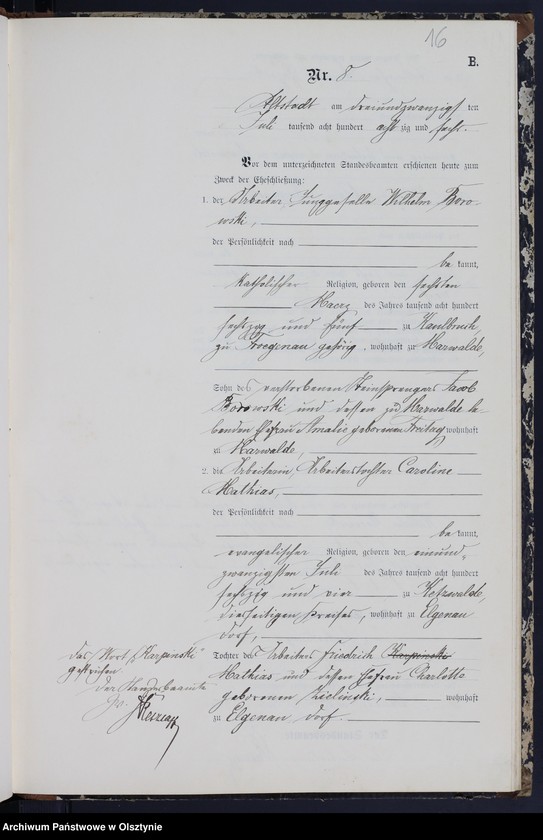 16
B.
Nr. 8.
Altstadt am dreiundzwanzigs ten
Juli tausend acht hundert acht zig und sechs.
Vor dem unterzeichneten Standesbeamten erschienen heute zum
Zweck der Eheschließung:
1. der Arbeiter, Junggeselle Wilhelm Boro-
wski,
der Persönlichkeit nach
be kannt,
katholischer Religion, geboren den sechsten
Maerz des Jahres tausend acht hundert
sechszig und fünf zu Kaulbruch,
zu Froegenau gehörig, wohnhaft zu Marwalde,
Sohn des verstorbenen Steinsprengers Jacob
Borowski und dessen zu Marwalde le-
benden Ehefrau Amalie geborenen Freitag wohnhaft
zu Marwalde,
2. die Arbeiterin, Arbeiterstochter Caroline
Mathias,
der Persönlichkeit nach
be kannt,
evangelischer Religion, geboren den neunund-
zwanzigsten Juli des Jahres tausend acht hundert
sechszig und vier zu Ketzwalde,
diesseitigen Kreises, wohnhaft zu Elgenau
dorf,
Tochter des Arbeiters Friedrich Karpinski
Mathias und dessen Ehefrau Charlotte
geborenen Zielinski, wohnhaft
zu Elgenau dorf.
das Wort "Karpinski"
gestrichen
Der Standesbeamte